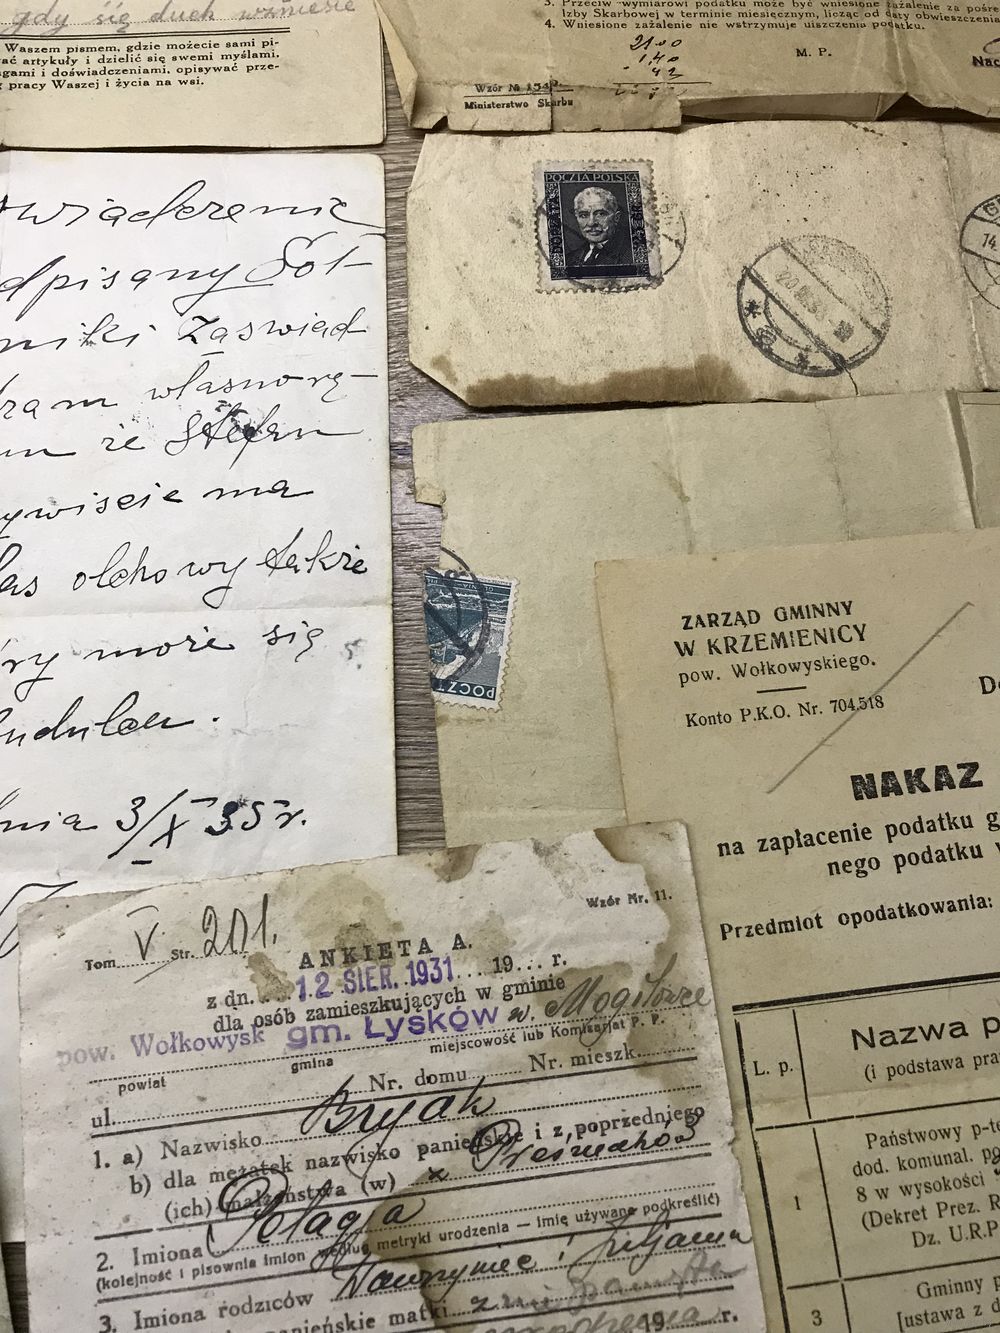 gdy się duch wzniesie
Waszem pismem, gdzie możecie sami pi-
ać artykuły i dzielić się swemi myślami.
agami i doświadczeniami, opisywać prze-
pracy Waszej i życia na wsi.
3. Przeciw wymiarowi podatku może być wniesione zażalenie za pośre
Izby Skarbowej w terminie miesięcznym, licząc od daty obwieszczenia
4. Wniesione zażalenie nie wstrzymuje uiszczenia podatku.
M. P.
Nac
2100
140
42
Wzór № 154
Ministerstwo Skarbu
POCZTA POLSKA
świadczenie
dpisany Soł-
niki Zaświad
własnorę-
że Stefan
ywiście ma
las olchowy także
óry może się
3/X 35 r.
POCZT
ZARZĄD GMINNY
W KRZEMIENICY
pow. Wołkowyskiego.
Konto P.K.O. Nr. 704.518
NAKAZ
na zapłacenie podatku g
nego podatku
Przedmiot opodatkowania:
L. p.
Nazwa p
(i podstawa pra
1
Państwowy p-te
dod. komunal. pg
8 w wysokości
(Dekret Prez. R
Dz. U.R.P
3
Gminny p
[ustawa z d
Wzór Nr. 11.
Tom V Str. 201.
ANKIETA A.
z dn. 12 SIER. 1931 19... r.
dla osób zamieszkujących w gminie
pow. Wołkowysk gm. Łysków w. Mogilowce
powiat gmina miejscowość lub Komisarjat P. P.
ul. Nr. domu Nr. mieszk.
1. a) Nazwisko Bryak
b) dla mężatek nazwisko panieńskie i z poprzedniego
(ich) małżeństwa (w) z
2. Imiona Pelagja
(kolejność i pisownia imion według metryki urodzenia — imię używane podkreślić)
3. Imiona rodziców Wawrzyniec i Juljanna
panieńskie matki z
19 r.